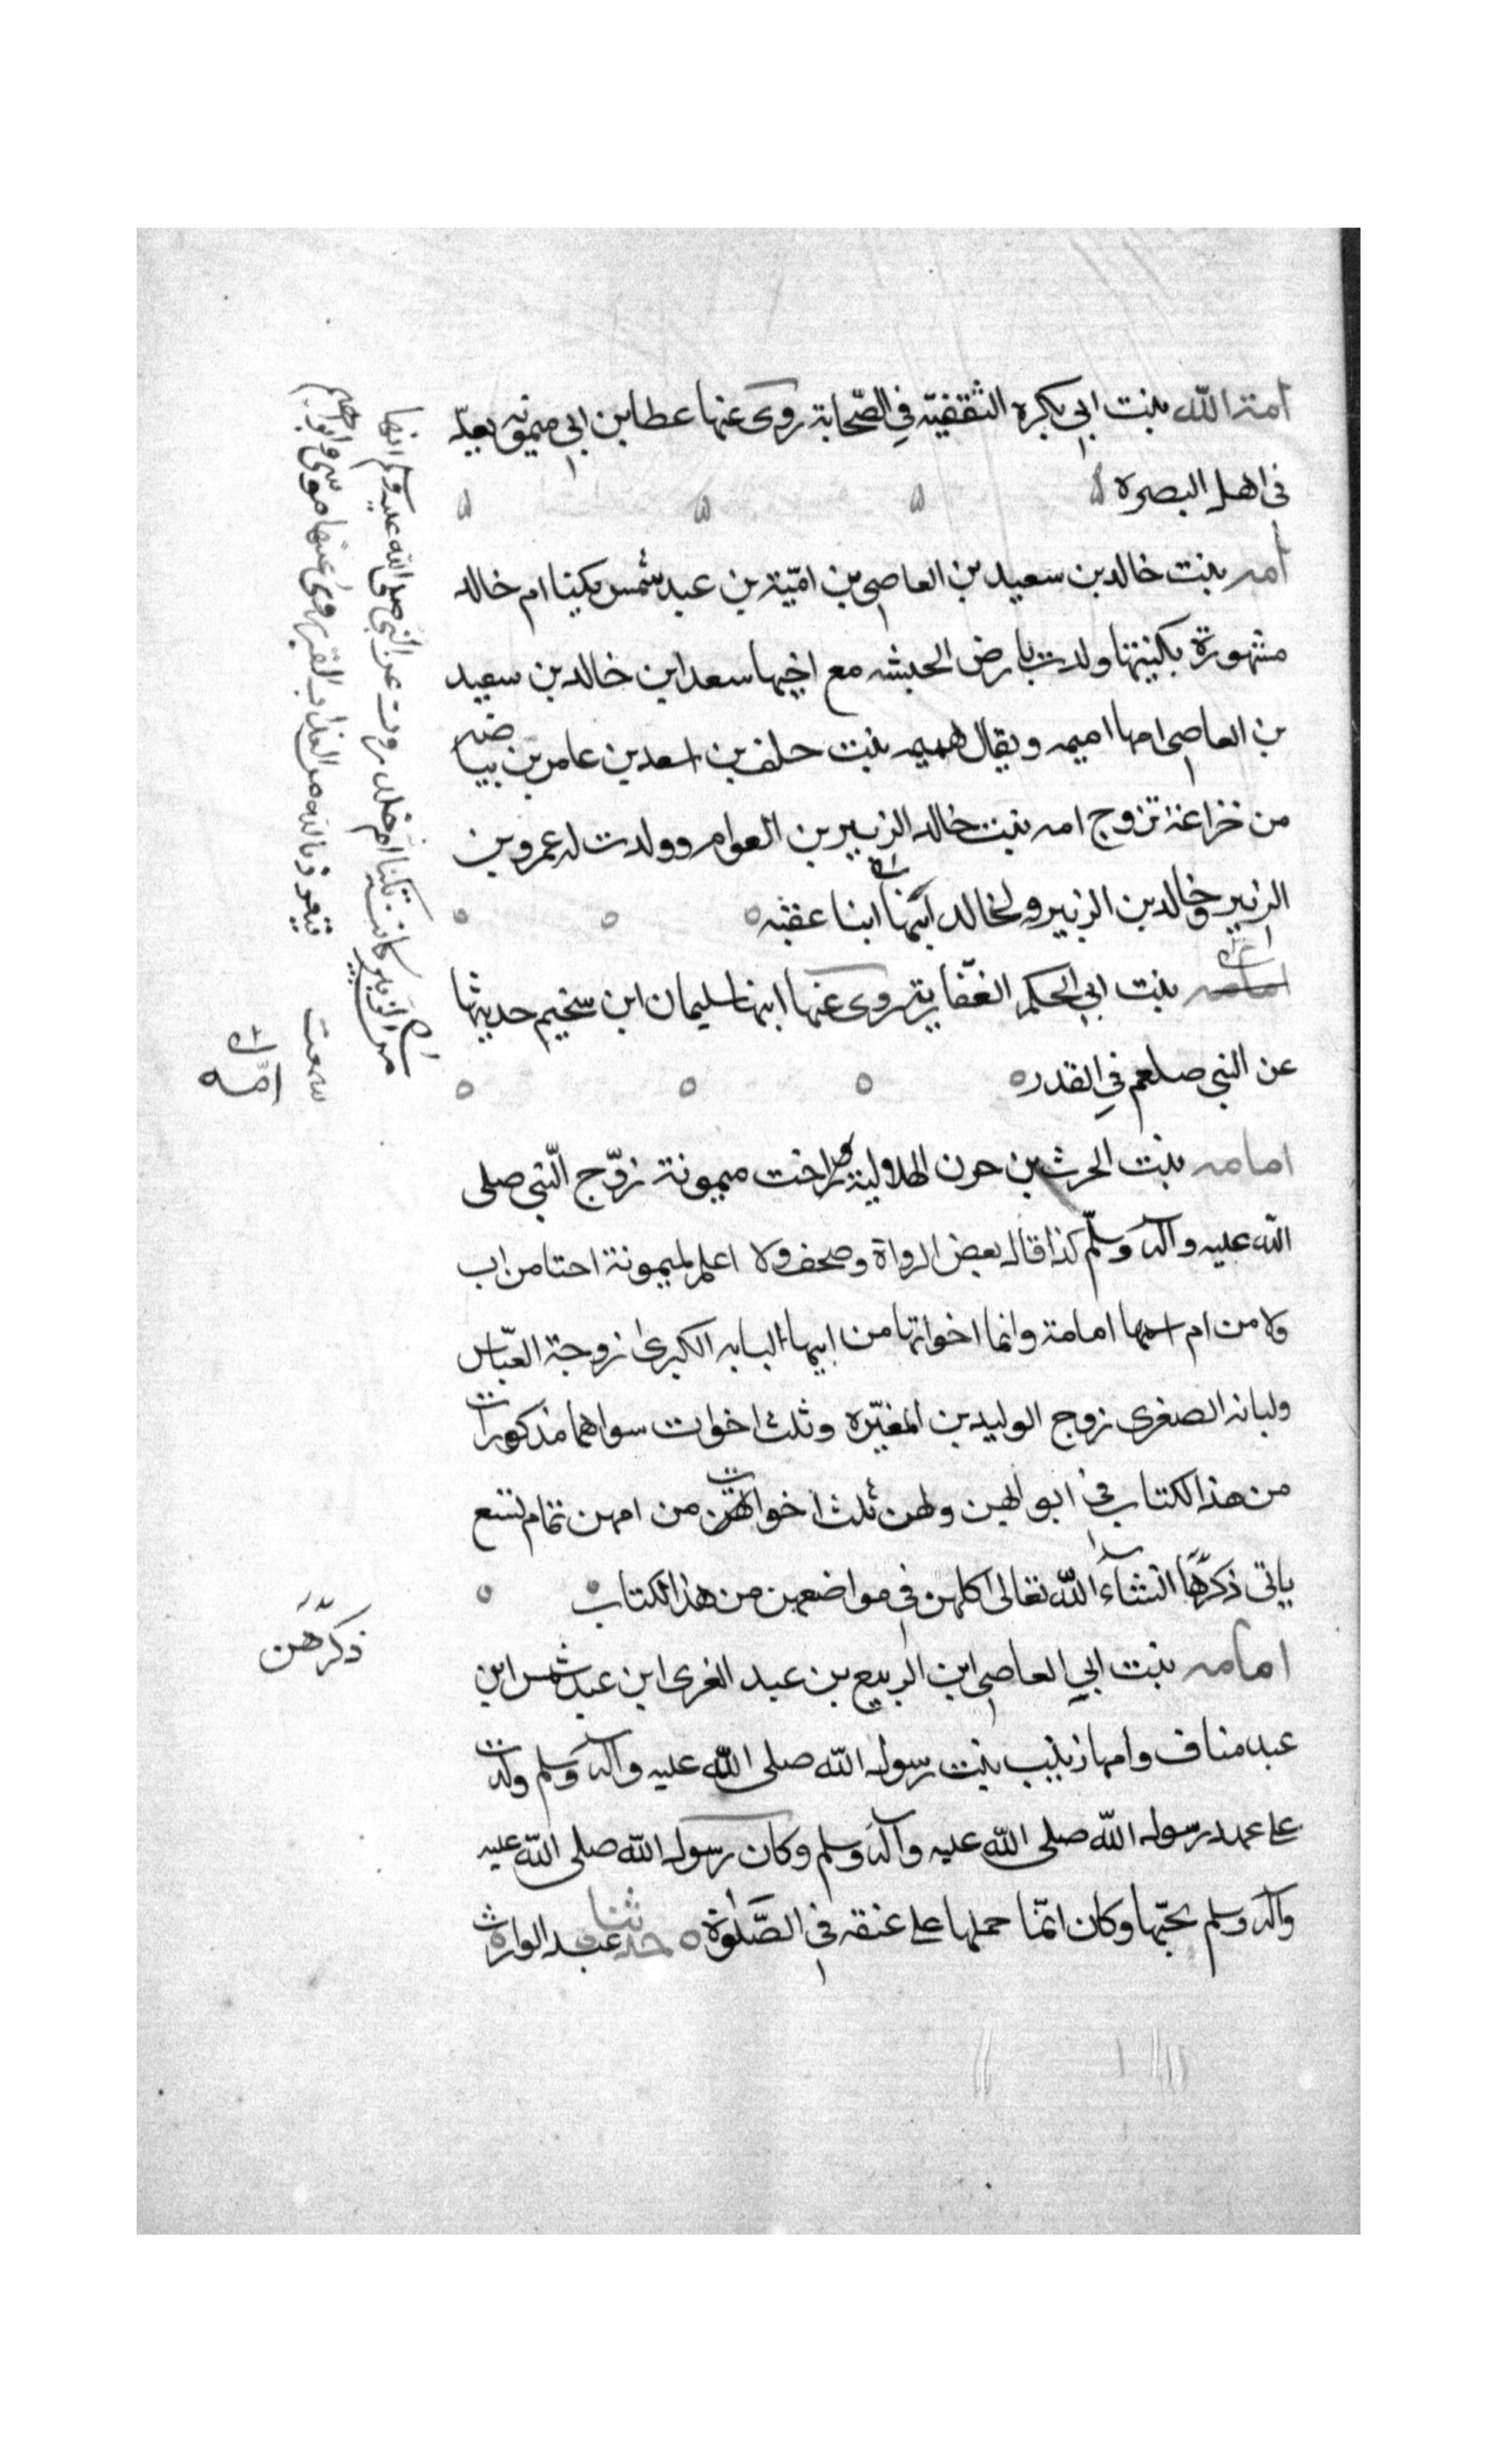 امة الله بنت ابي بكرة الثقفيّة في الصّحابة روى عنها عطا بن ابي ميمونه يعدّ
في اهل البصرة
امه بنت خالد بن سعيد بن العاصي بن اميّة بن عبد شمس يكينا ام خالد
مشهورة بكنيتها ولدت بارض الحبشه مع اخيها سعد ابن خالد بن سعيد
بن العاصي امها اميمه ويقال هميمه بنت خلف بن اسعد بن عامر بن بياضه
من خزاعة تزوج امه بنت خالد الزبير بن العوام وولدت له عمرو بن
الزبير وخالد بن الزبير وخالد ابنا عقبه
امامه بنت ابي الحكم الغفّارية روى عنها ابنها سليمان ابن سخيم حديثها
عن النبي صلعم في القدر
امامه بنت الحرث بن حزن الهلالية اخت ميمونة زوّج النّبي صلى
الله عليه وآله وسلّم كذا قال بعض الرواة وصحف ولا اعلم لميمونة اختا من اب
ولا من ام اسمها امامة وانما اخواتها من ابيها لبابه الكبرى زوجة العبّاس
ولبانه الصغرى زوج الوليد بن المغيّره وثلث اخوات سواهما مذكورات
من هذا الكتاب في ابوابهن ولهن ثلث اخوات من امهن تمام تسع
ياتي ذكرها انشاء الله تعالى كلهن في مواضعهن من هذا الكتاب
امامه بنت ابي العاصي ابن الربيع بن عبد العزى ابن عبد شمس ابن
عبد مناف وامها زينب بنت رسول الله صلى الله عليه وآله وسلم ولدت
على عهد رسول الله صلى الله عليه وآله وسلم وكان رسول الله صلى الله عليه
وآله وسلم يحبّها وكان انمّا حملها على عنقه في الصّلوة حدثنا عبد الوارث
امّه
ذكرهن
من الزبير كانت تكنا ام خلد روت عن النبي صلى الله عليه وسلم انها
سمعت يتعوذ بالله من عذاب القبر روى عنها موسى وابراهيم